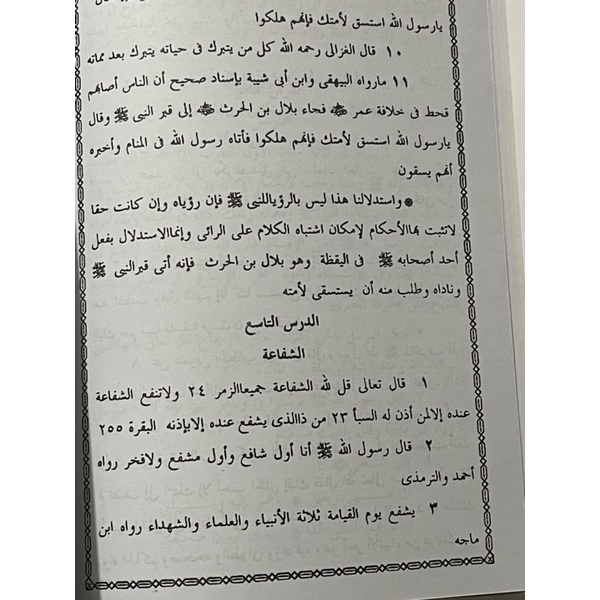 يارسول الله استسق لأمتك فإنهم هلكوا
١٠ قال الغزالى رحمه الله كل من يتبرك فى حياته يتبرك بعد مماته
١١ مارواه البيهقى وابن أبي شيبة بإسناد صحيح أن الناس أصابهم
قحط فى خلافة عمر ﷺ فجاء بلال بن الحرث ﷺ إلى قبر النبى ﷺ وقال
يارسول الله استسق لأمتك فإنهم هلكوا فأتاه رسول الله فى المنام وأخبره
أنهم يسقون
واستدلالنا هذا ليس بالرؤياللنبى ﷺ فإن رؤياه وإن كانت حقا
لاتثبت بهاالأحكام لإمكان اشتباه الكلام على الرائى وإنماالاستدلال بفعل
أحد أصحابه ﷺ فى اليقظة وهو بلال بن الحرث فإنه أتى قبرالنبى ﷺ
وناداه وطلب منه أن يستسقى لأمته
الدرس التاسع
الشفاعة
١ قال تعالى قل لله الشفاعة جميعاالزمر ٢٤ ولاتنفع الشفاعة
عنده إلالمن أذن له السبأ ٢٣ من ذاالذى يشفع عنده إلابإذنه البقرة ٢٥٥
٢ قال رسول الله ﷺ أنا أول شافع وأول مشفع ولافخر رواه
أحمد والترمذى
٣ يشفع يوم القيامة ثلاثة الأنبياء والعلماء والشهداء رواه ابن
ماجه